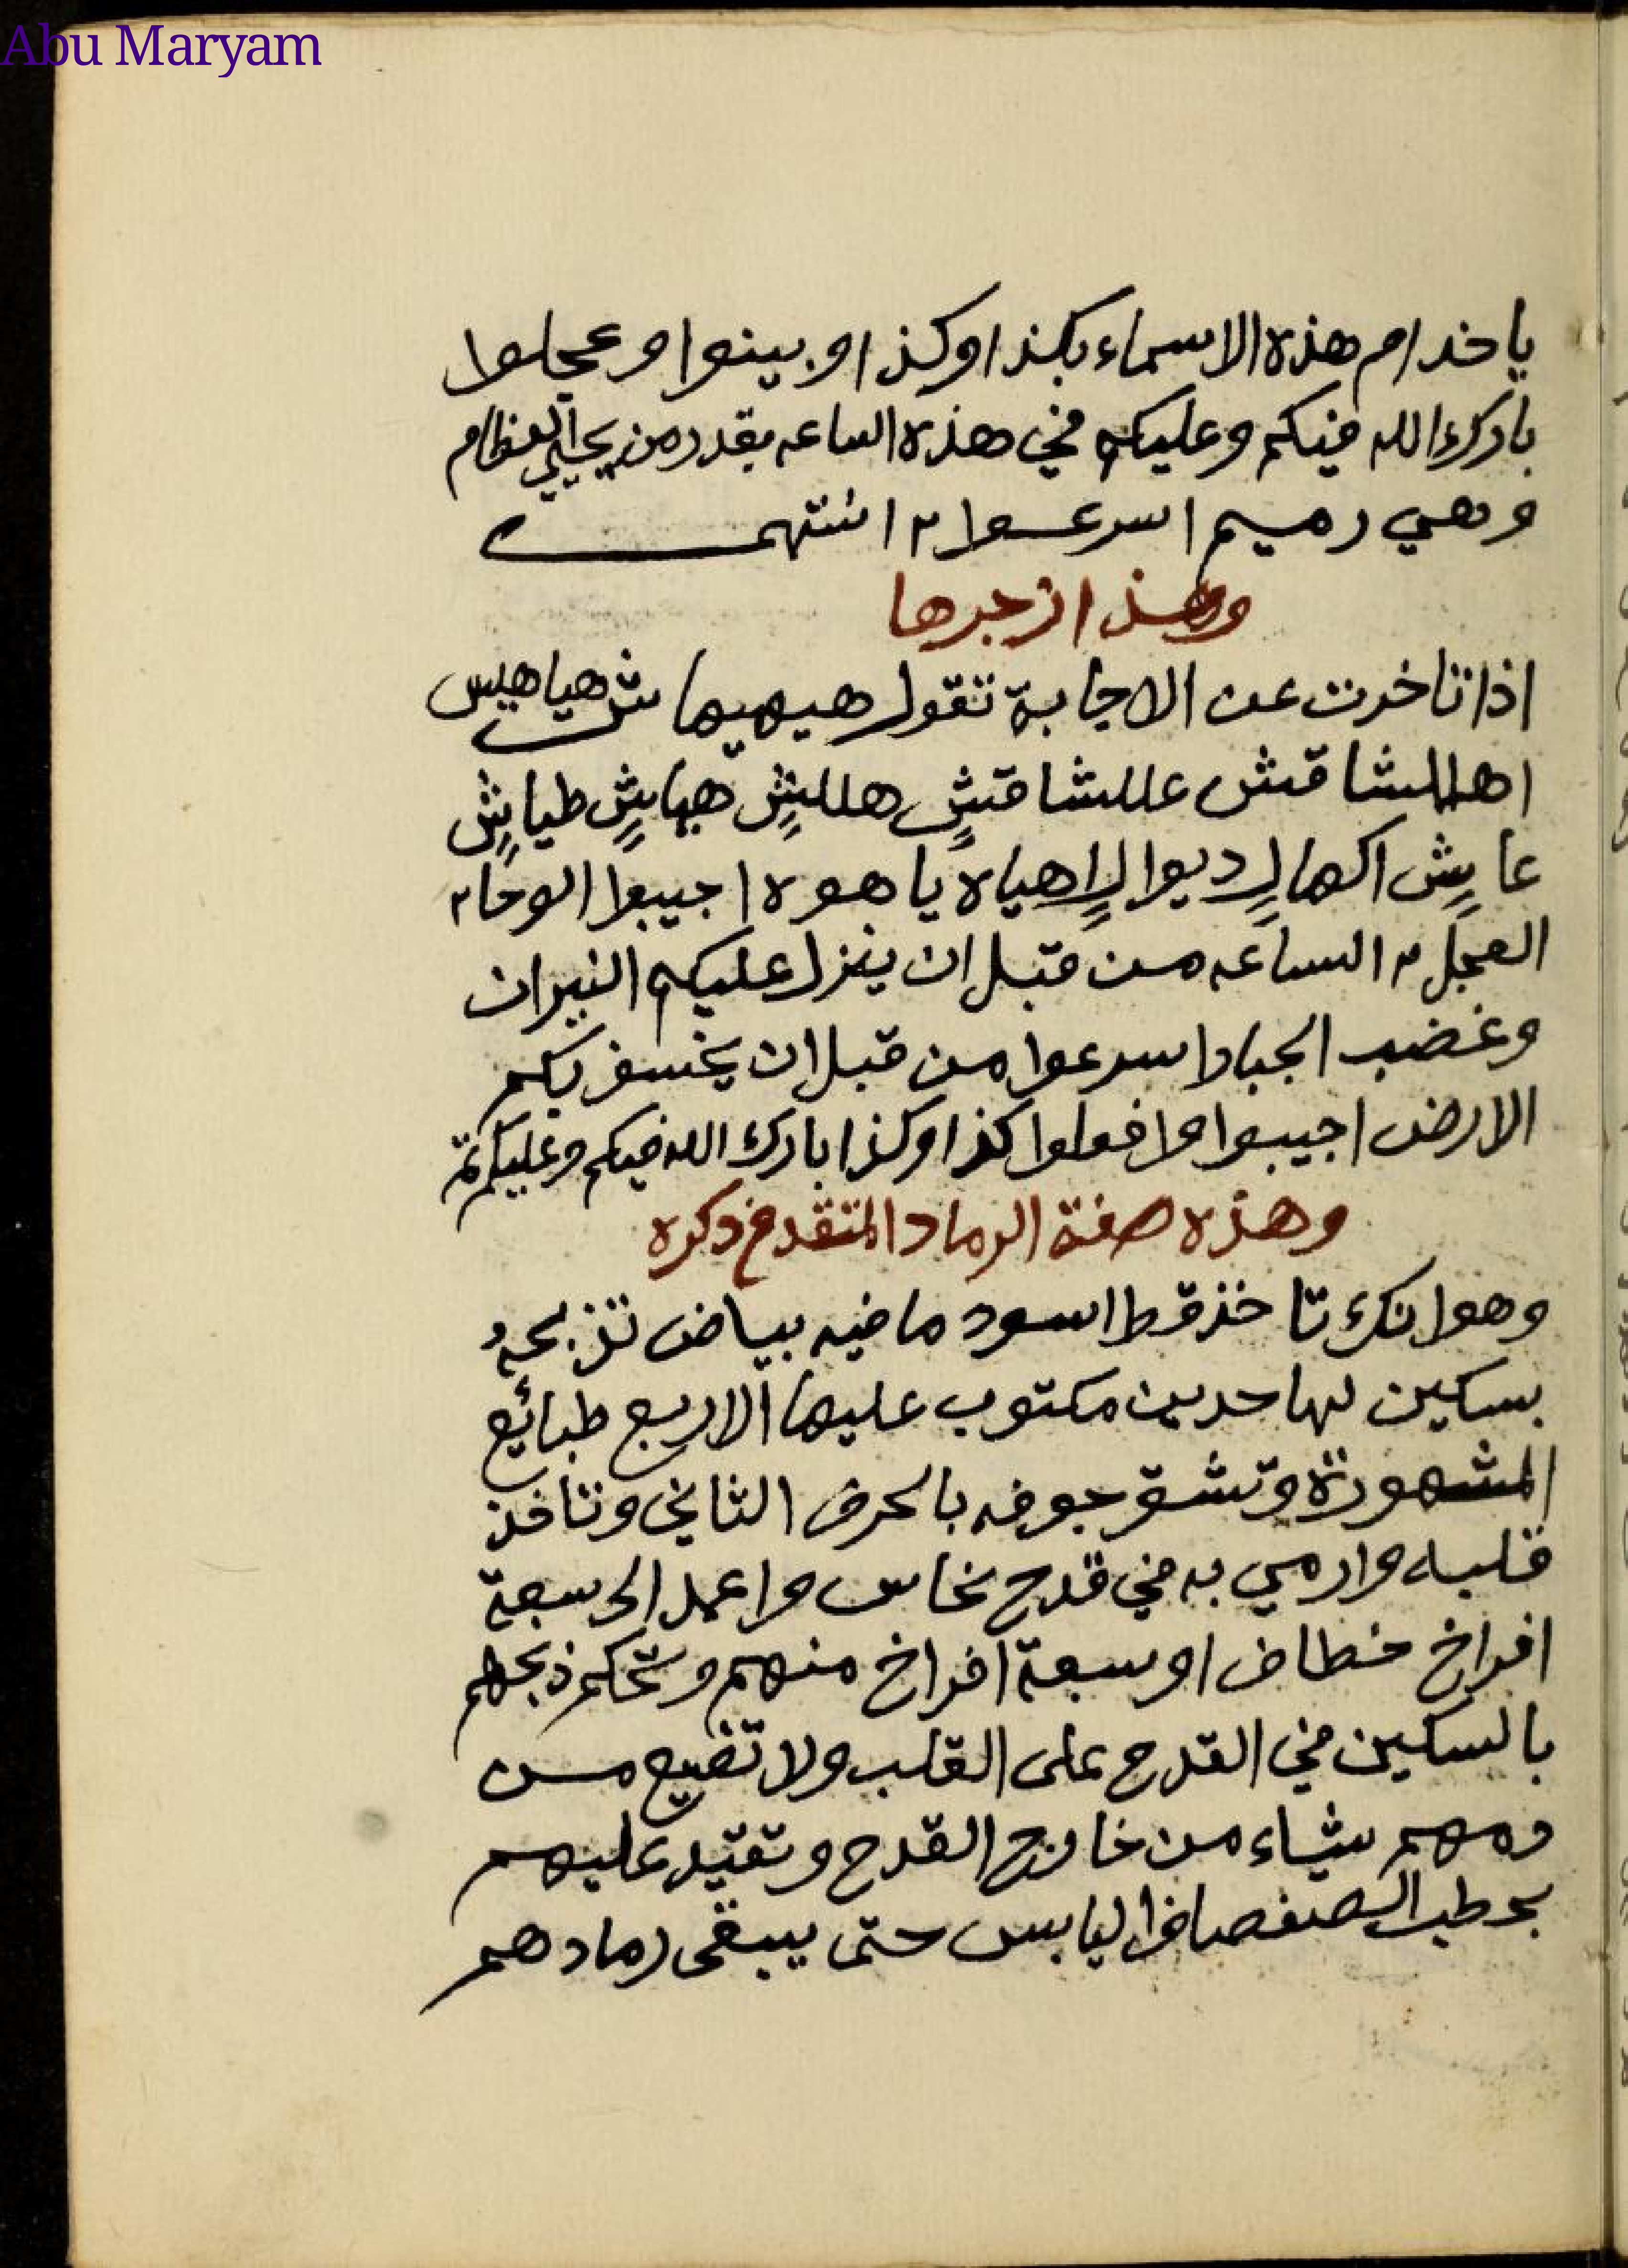 Abu Maryam
ياخدام هذه الاسماء بكذا وكذا وبينوا وعجلوا
بارك الله فيكم وعليكم في هذه الساعه بقدر من يحيي العظام
وهي رميم اسرعوا ٢ انتهت
وهذا زجرها
اذا تاخرت عن الاجابة تقول هيهيها ش هياهيس
اهللشاقش عللشاقش هللش هياش طياش
عايش اكهال ديوال اهياه ياهوه اجيبوا الوحا ٢
العجل ٢ الساعه من قبل ان ينزل عليكم النيران
وغضب الجبار اسرعوا من قبل ان يخسف بكم
الارض اجيبوا وافعلوا كذا وكذا بارك الله فيكم وعليكم تم
وهذه صفة الرماد المتقدم ذكره
وهوا نك تاخذ قط اسود ما فيه بياض تذبحه
بسكين لها حدين مكتوب عليها الاربع طبائع
المشهورة وتشق جوفه بالحرف الثاني وتاخذ
قلبه وارمي به في قدح نحاس واعمد الى سبعة
افراخ خطاف او سبعة افراخ منهم وتحكم ذبحهم
بالسكين في القدح على القلب ولا تضيع من
دمهم شياء من خارج القدح وتقيد عليهم
بحطب الصفصاف اليابس حتى يبقى رمادهم